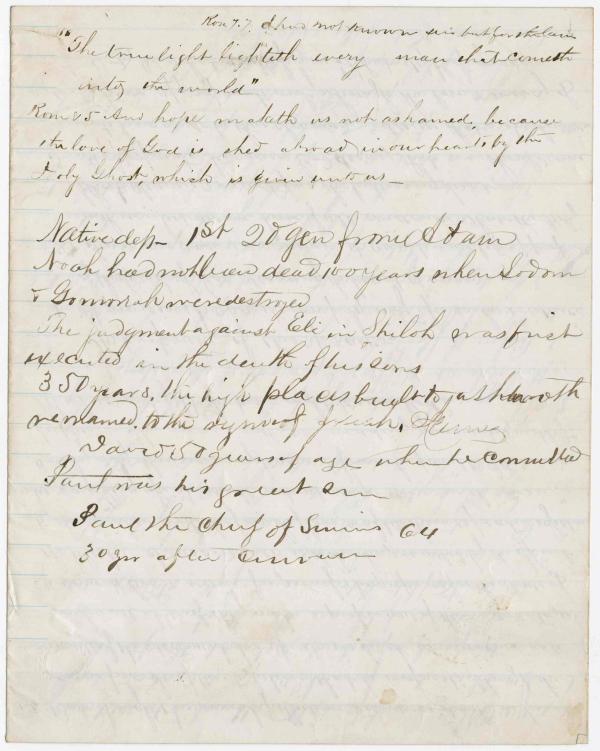 Rom 7.7. I had not known sin but for the law
"The true light lighteth every man that cometh
into the world"
Rom 5 And hope maketh us not ashamed, because
the love of God is shed abroad in our hearts by the
Holy Ghost, which is given unto us —
Native dep- 1st 2d gen from Adam
Noah had not been dead 100 years when Sodom
& Gomorrah were destroyed
The judgment against Eli in Shiloh was first
executed in the death of his sons
350 years. the high places built to Ashtaroth
remained. to the reign of Josiah.
David 50 years of age when he committed
his great sin
Paul was
Paul the Chief of Sinners 64
30 yrs after